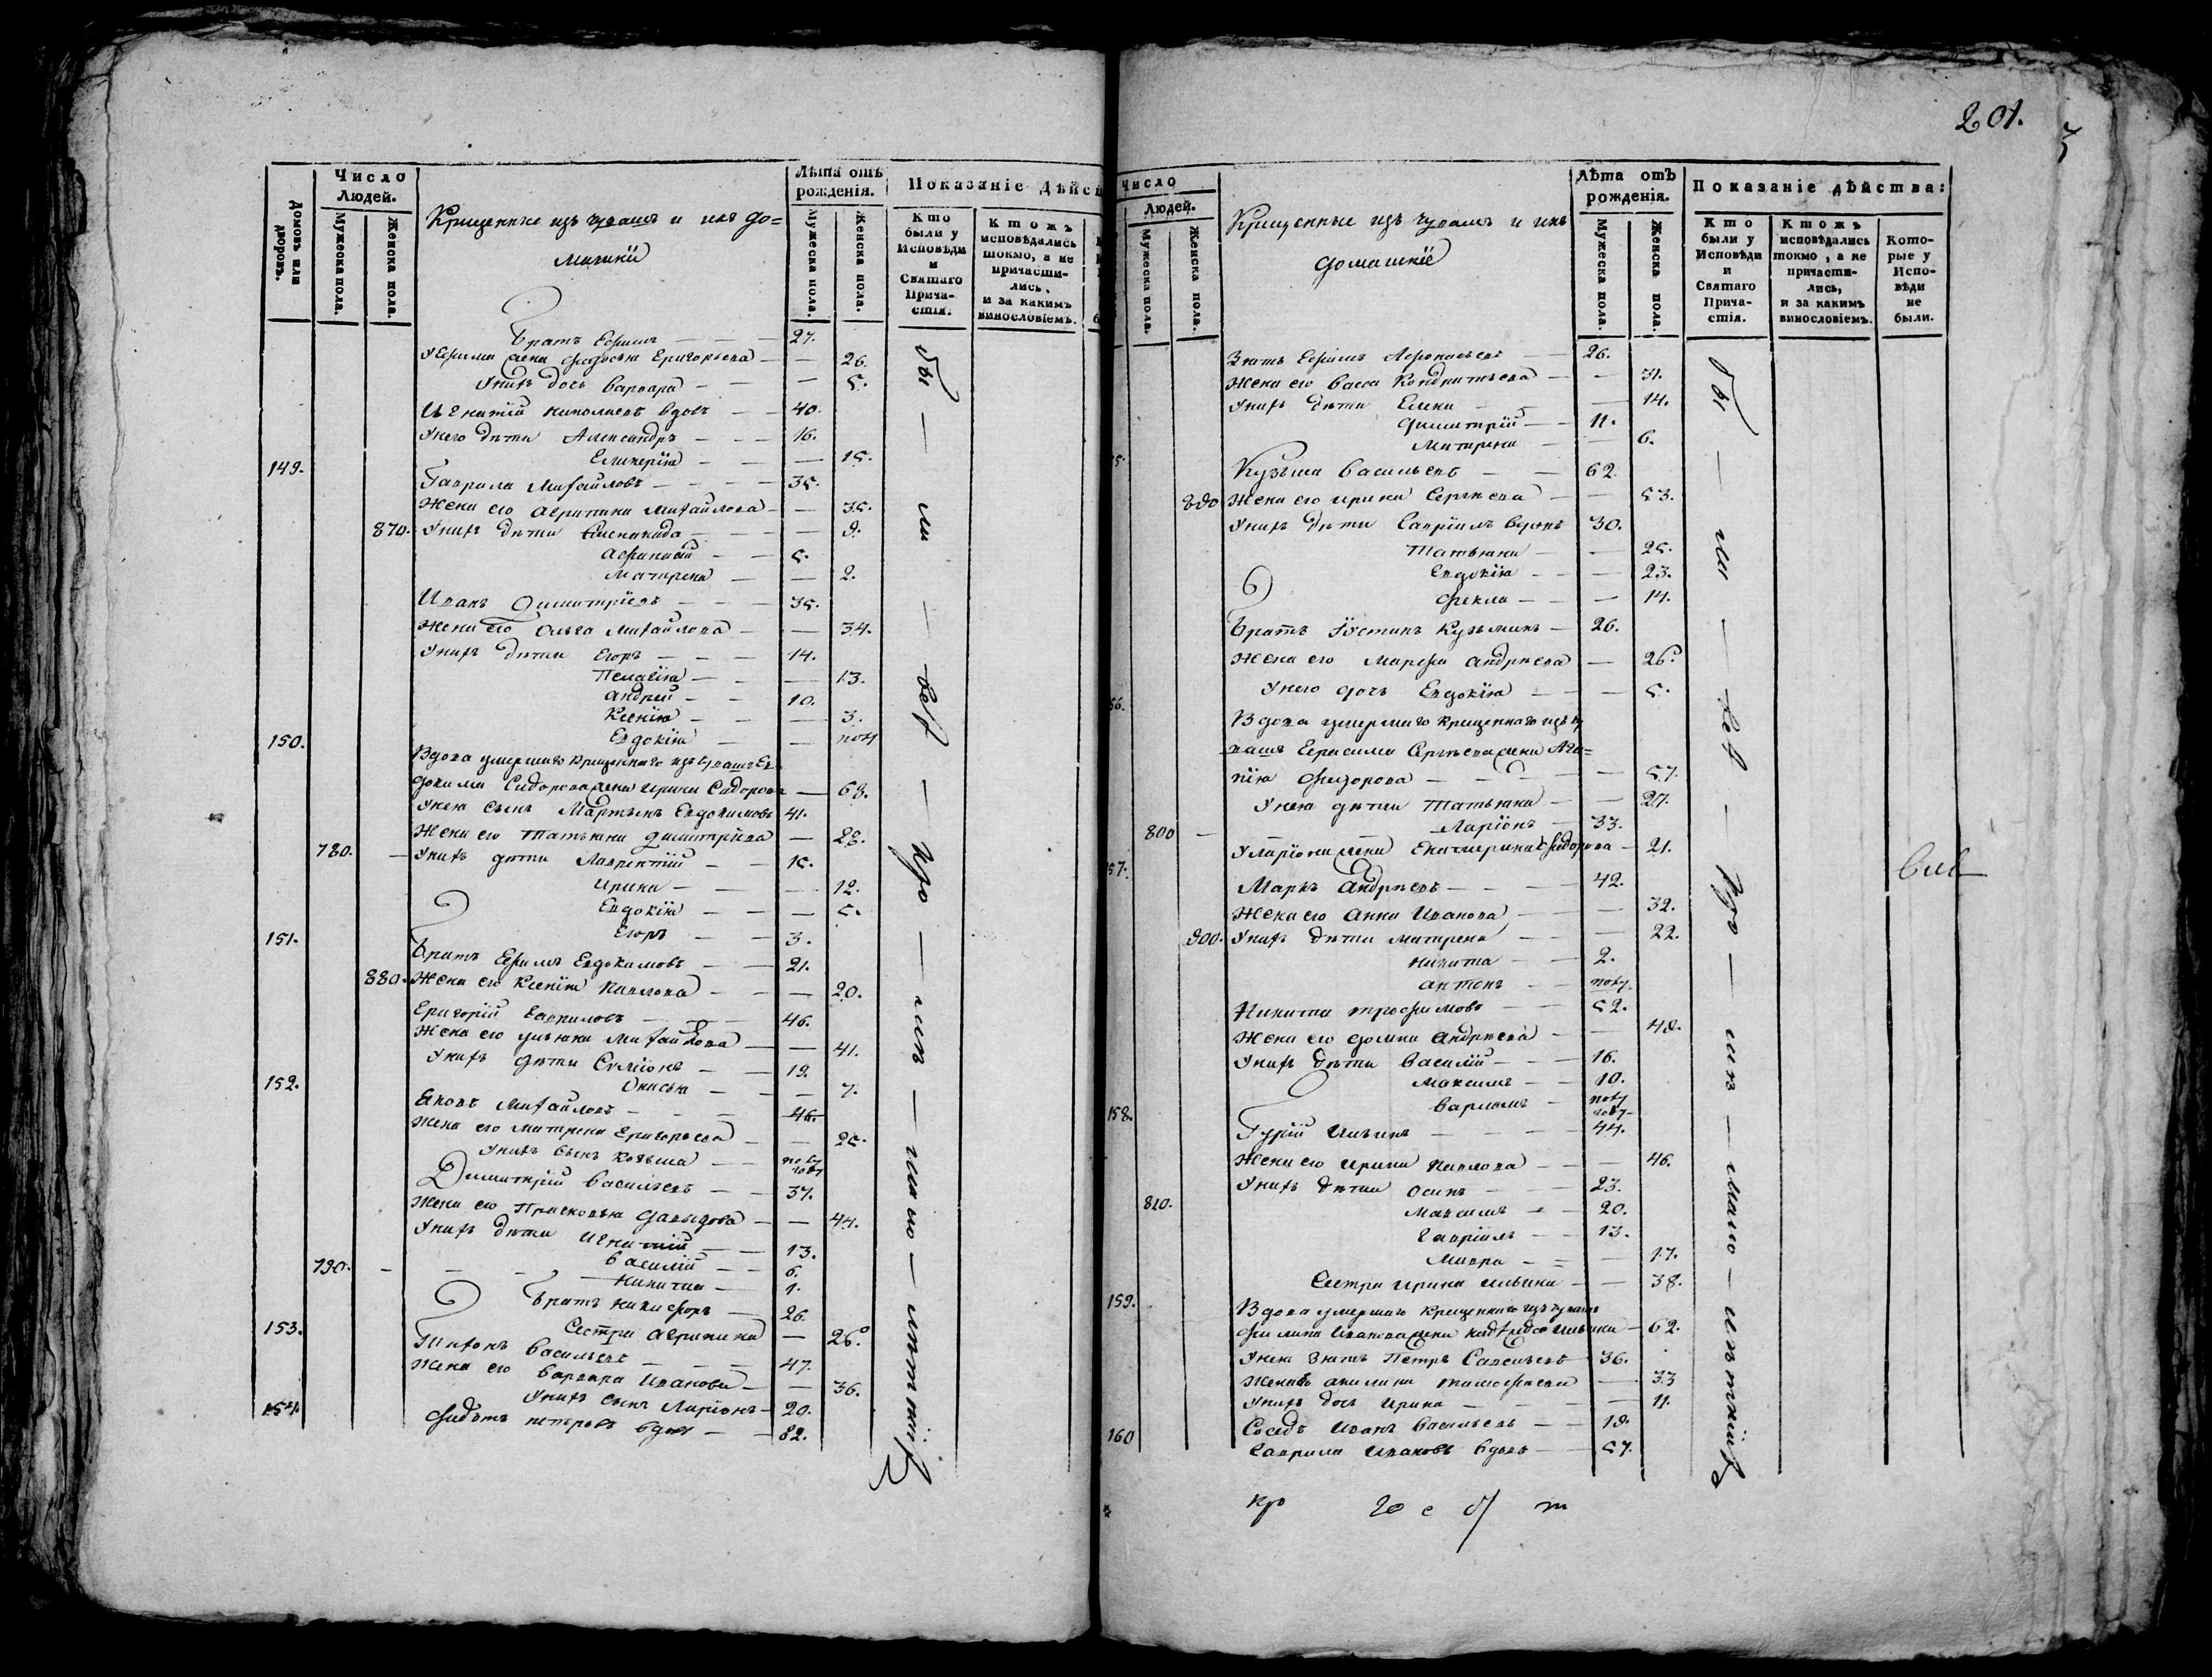 Число Людей.
Домовъ или дворовъ.
Мужеска пола.
Женска пола.
Крещенные изъ чувашъ и ихъ до=
машнiи
Лѣта отъ рожденія.
Мужеска пола.
Женска пола.
Показаніе Дѣйс
Кто были у Исповѣди и Святаго Причастія.
Ктожъ исповѣдались токмо, а не причастились, и за какимъ винословіемъ.
Братъ Ефимъ — 27.
У Ефима жена Федосья Григорьева — 26.
У нихъ дочь Варвара — 5.
Игнатій Николаевъ вдовъ — 40.
У него дѣти Александръ — 16.
Гликерія — 15.
149. Гаврила Михайловъ — 35.
Жена его Агрипина Михайлова — 35.
870. У нихъ дѣти — 9.
5.
Матрена — 2.
Иванъ Димитріевъ — 35.
Жена его Ольга Михайлова — 34.
У нихъ дѣти Егоръ — 14.
Пелагія — 13.
Андрей — 10.
Ксенія — 3.
Евдокія —
150. Вдова умершаго крещеннаго изъ чувашъ Ев
докима Сидорова жена Ирина Сидорова — 68.
У нея сынъ Мартынъ Евдокимовъ 41.
Жена его Татьяна Димитріева — 28.
780. У нихъ дѣти Лаврентій — 15.
Ирина — 12.
Евдокія — 5.
Егоръ — 3.
151. Братъ Ефимъ Евдокимовъ — 21.
880. Жена его Ксенія Павлова — 20.
Григорій Гавриловъ — 46.
Жена его Ульяна Михайлова — 41.
У нихъ дѣти Симіонъ — 19.
Онисья — 7.
152. Яковъ Михайловъ — 46.
Жена его Матрена Григорьева — 25.
У нихъ сынъ Козьма —
Димитрій Васильевъ — 37.
Жена его Прасковья Давыдова — 44.
У нихъ дѣти Игнатій — 13.
Василій — 6.
790. Никита — 1.
Братъ Никифоръ — 26.
Сестра Агрипина — 26.
153. Тихонъ Васильевъ — 47.
Жена его Варвара Иванова — 36.
У нихъ сынъ Ларіонъ — 20.
154. Федотъ Петровъ вдовъ — 82.
201.
Число Людей.
Мужеска пола.
Женска пола.
Крещенные изъ чувашъ и ихъ
домашнiе
Лѣта отъ рожденія.
Мужеска пола.
Женска пола.
Показаніе дѣйства:
Кто были у Исповѣди и Святаго Причастія.
Ктожъ исповѣдались токмо, а не причастились, и за какимъ винословіемъ.
Которые у Исповѣди не были.
Зять Ефимъ Афонасьевъ — 26.
Жена его Васса Кондратьева — 31.
У нихъ дѣти Елена — 14.
Димитрій — 11.
Матрена — 6.
Кузьма Васильевъ — 62.
890 Жена его Ирина Сергѣева — 53.
У нихъ дѣти Гавріилъ вдовъ 30.
Татьяна — 25.
Евдокія — 23.
Фекла — 14.
Братъ Іустинъ Кузьминъ — 26.
Жена его Марфа Андрѣева — 26.
У него дочь Евдокія — 5.
56. Вдова умершаго крещеннаго изъ чу
вашъ Герасима Сергѣева жена Ага=
пія Федорова — 57.
У нея дѣти Татьяна — 27.
800 — Ларіонъ — 33.
У Ларіона жена Екатерина Федорова — 21.
57. Маркъ Андрѣевъ — 42.
Жена его Анна Иванова — 32.
900. У нихъ дѣти Матрена — 22.
Никита — 2.
Антонъ —
Никита Трофимовъ — 52.
Жена его Домна Андрѣева — 48.
У нихъ дѣти Василій — 16.
Максимъ — 10.
158. Гурій Ильинъ — 44.
Жена его Ирина Павлова — 46.
У нихъ дѣти Осипъ — 23.
810. Максимъ — 20.
Гавріилъ — 13.
Мавра — 17.
Сестра Ирина Ильина — 38.
159. Вдова умершаго крещеннаго изъ чувашъ
Филипа Иванова жена Надежда Ильина — 62.
У нея зять Петръ Савельевъ 36.
Жена его Акилина Тимофеева — 33
У нихъ дочь Ирина — 11.
Соседъ Иванъ Васильевъ — 19.
160 Гаврила Ивановъ вдовъ — 57.